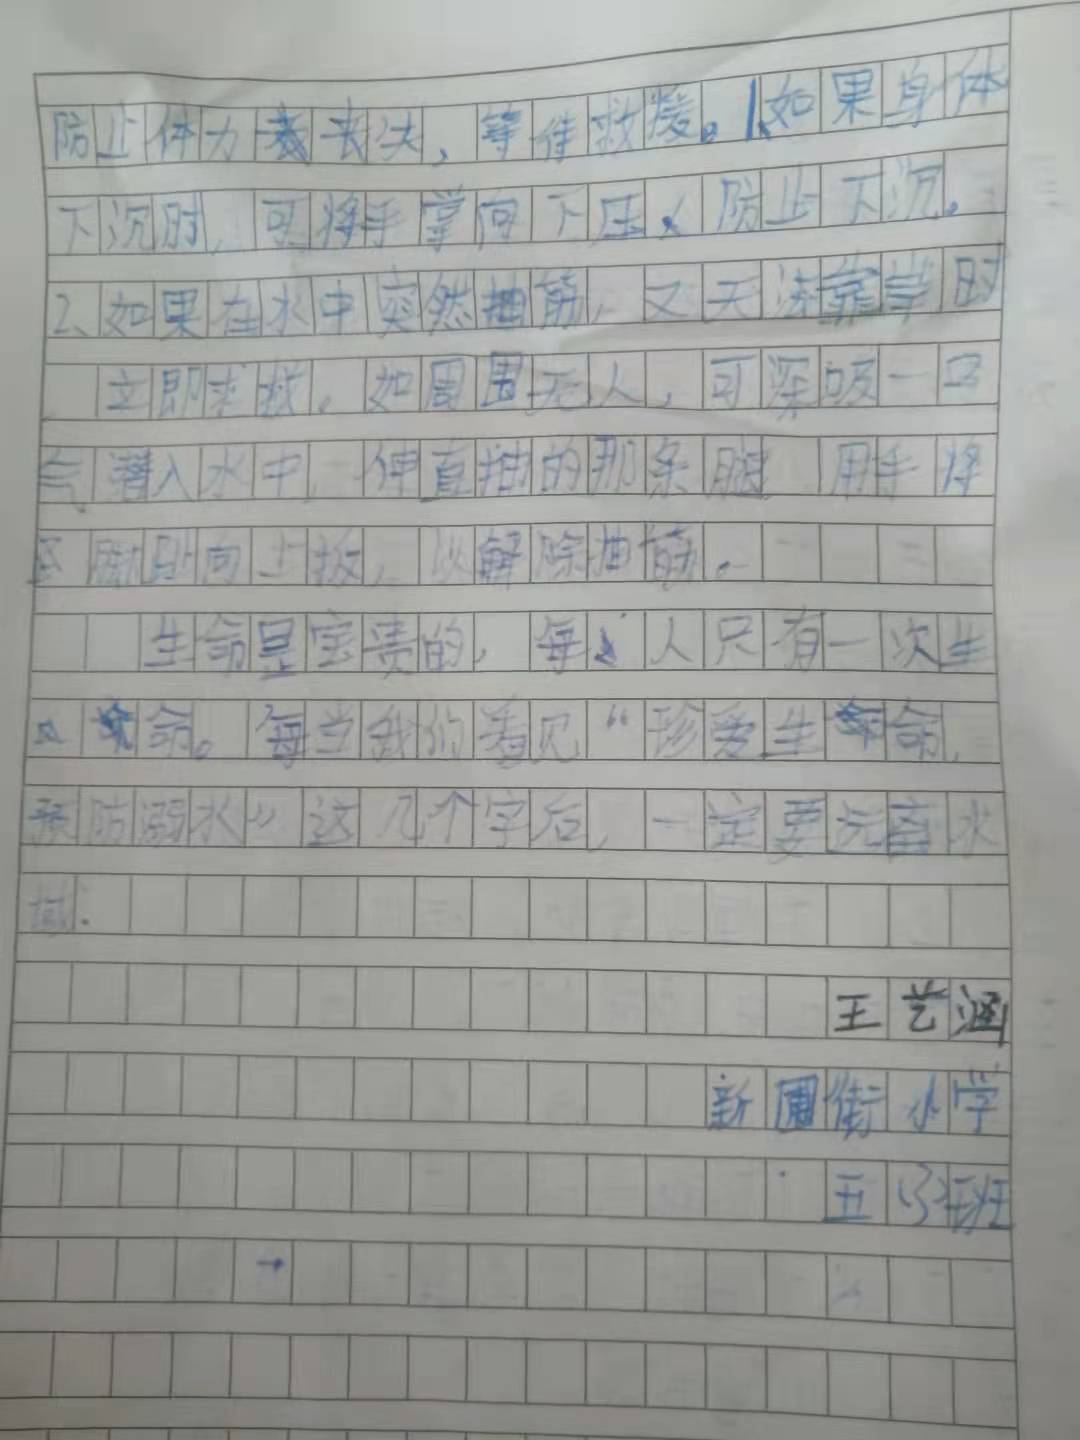 防止体力丧失，等待救援。1、如果身体
下沉时，可将手掌向下压、防止下沉。
2、如果在水中突然抽筋，又无法靠岸时
立即求救。如周围无人，可深吸一口
气潜入水中，伸直抽的那条腿，用手将
脚趾向上扳，以解除抽筋。
生命是宝贵的，每人只有一次生
命。每当我们看见“珍爱生命，
预防溺水”这几个字后，一定要远离水
域.
王艺涵
新圃街小学
五(3)班